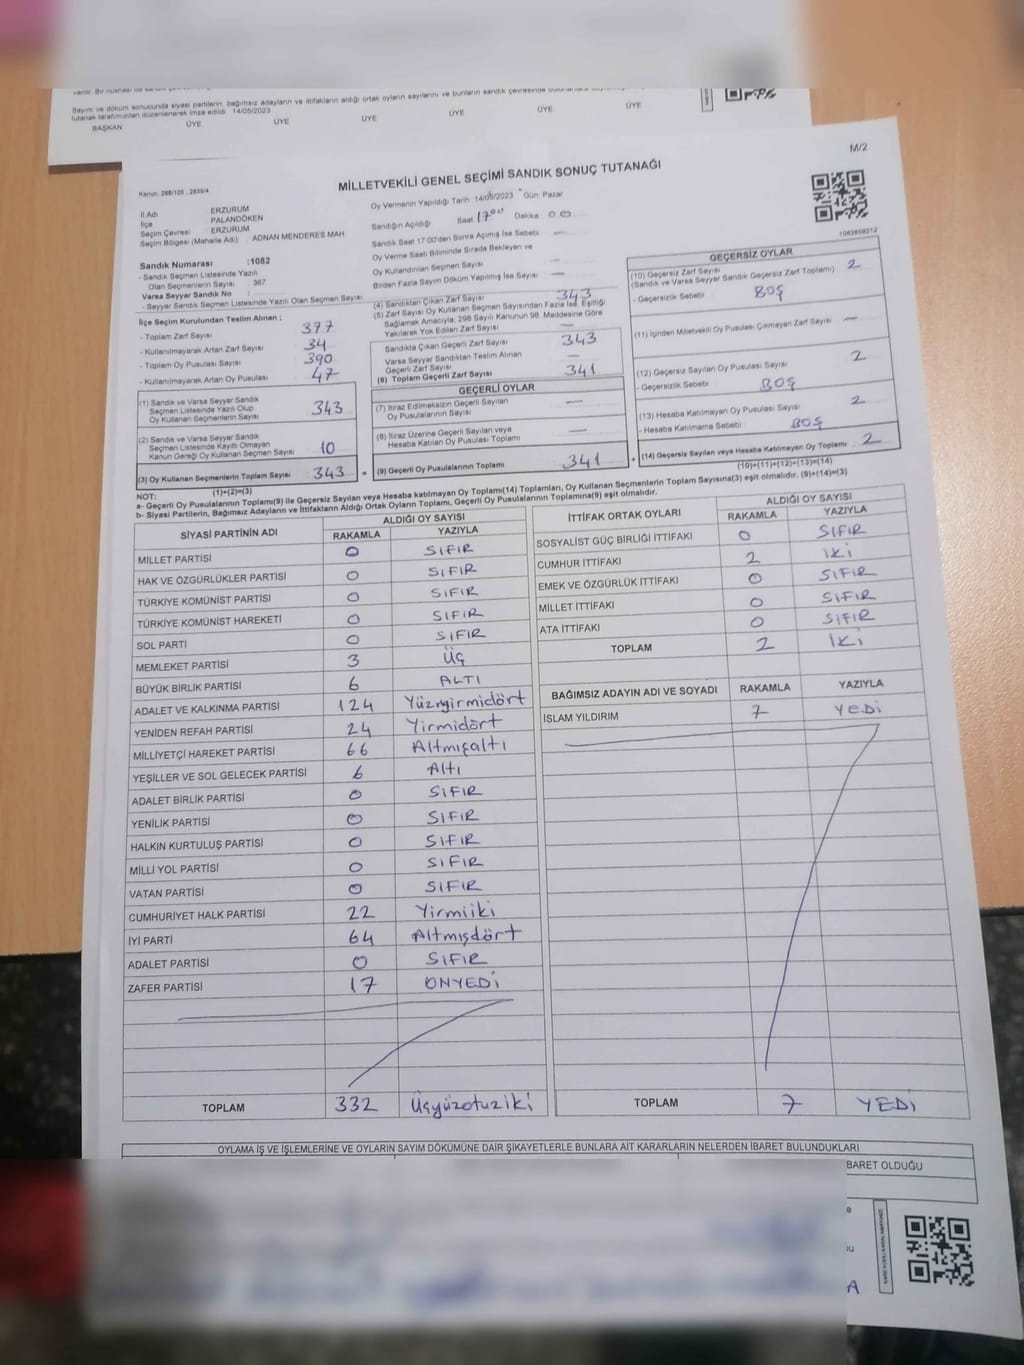 Sayım ve döküm sonucunda siyasi partilerin, bağımsız adayların ve ittifakların aldığı ortak oyların sayılarını ve bunların sandık çevresinde
tutanak tarafımızdan düzenlenerek imza edildi. 14/05/2023
BAŞKAN ÜYE ÜYE ÜYE ÜYE ÜYE ÜYE
M/2
Kanun: 298/105 , 2839/4
MİLLETVEKİLİ GENEL SEÇİMİ SANDIK SONUÇ TUTANAĞI
İl Adı : ERZURUM
İlçe : PALANDÖKEN
Seçim Çevresi : ERZURUM
Seçim Bölgesi (Mahalle Adı) : ADNAN MENDERES MAH
Sandık Numarası :1082
- Sandık Seçmen Listesinde Yazılı
Olan Seçmenlerin Sayısı : 367
Varsa Seyyar Sandık No :
- Seyyar Sandık Seçmen Listesinde Yazılı Olan Seçmen Sayısı
İlçe Seçim Kurulundan Teslim Alınan :
- Toplam Zarf Sayısı : 377
- Kullanılmayarak Artan Zarf Sayısı : 34
- Toplam Oy Pusulası Sayısı : 390
- Kullanılmayarak Artan Oy Pusulası : 47
(1) Sandık ve Varsa Seyyar Sandık
Seçmen Listesinde Yazılı Olup
Oy Kullanan Seçmenlerin Sayısı : 343
(2) Sandık ve Varsa Seyyar Sandık
Seçmen Listesinde Kayıtlı Olmayan
Kanun Gereği Oy Kullanan Seçmen Sayısı : 10
(3) Oy Kullanan Seçmenlerin Toplam Sayısı : 343
(1)+(2)=(3)
Oy Vermenin Yapıldığı Tarih :14/05/2023 Gün: Pazar
Sandığın Açıldığı Saat 17:00 Dakika 00
Sandık Saat 17:00'den Sonra Açılmış İse Sebebi : —
Oy Verme Saati Bitiminde Sırada Bekleyen ve
Oy Kullandırılan Seçmen Sayısı : —
Birden Fazla Sayım Döküm Yapılmış İse Sayısı : —
(4) Sandıktan Çıkan Zarf Sayısı : 343
(5) Zarf Sayısı Oy Kullanan Seçmen Sayısından Fazla İse, Eşitliği
Sağlamak Amacıyla, 298 Sayılı Kanunun 98. Maddesine Göre
Yakılarak Yok Edilen Zarf Sayısı : —
Sandıkta Çıkan Geçerli Zarf Sayısı : 343
Varsa Seyyar Sandıktan Teslim Alınan
Geçerli Zarf Sayısı : —
(6) Toplam Geçerli Zarf Sayısı : 341
GEÇERLİ OYLAR
(7) İtiraz Edilmeksizin Geçerli Sayılan
Oy Pusulalarının Sayısı : —
(8) İtiraz Üzerine Geçerli Sayılan veya
Hesaba Katılan Oy Pusulası Toplamı : —
= (9) Geçerli Oy Pusulalarının Toplamı : 341
1083859212
GEÇERSİZ OYLAR
(10) Geçersiz Zarf Sayısı
(Sandık ve Varsa Seyyar Sandık Geçersiz Zarf Toplamı) : 2
- Geçersizlik Sebebi : BOŞ
(11) İçinden Milletvekili Oy Pusulası Çıkmayan Zarf Sayısı : —
(12) Geçersiz Sayılan Oy Pusulası Sayısı : 2
- Geçersizlik Sebebi : BOŞ
(13) Hesaba Katılmayan Oy Pusulası Sayısı : 2
- Hesaba Katılmama Sebebi : BOŞ
+ (14) Geçersiz Sayılan veya Hesaba Katılmayan Oy Toplamı : 2
(10)+(11)+(12)+(13)=(14)
NOT:
a- Geçerli Oy Pusulalarının Toplamı(9) ile Geçersiz Sayılan veya Hesaba katılmayan Oy Toplamı(14) Toplamları, Oy Kullanan Seçmenlerin Toplam Sayısına(3) eşit olmalıdır. (9)+(14)=(3)
b- Siyasi Partilerin, Bağımsız Adayların ve İttifakların Aldığı Ortak Oyların Toplamı, Geçerli Oy Pusulalarının Toplamına(9) eşit olmalıdır.
SİYASİ PARTİNİN ADI ALDIĞI OY SAYISI
RAKAMLA YAZIYLA
MİLLET PARTİSİ 0 SIFIR
HAK VE ÖZGÜRLÜKLER PARTİSİ 0 SIFIR
TÜRKİYE KOMÜNİST PARTİSİ 0 SIFIR
TÜRKİYE KOMÜNİST HAREKETİ 0 SIFIR
SOL PARTİ 0 SIFIR
MEMLEKET PARTİSİ 3 ÜÇ
BÜYÜK BİRLİK PARTİSİ 6 ALTI
ADALET VE KALKINMA PARTİSİ 124 Yüzyirmidört
YENİDEN REFAH PARTİSİ 24 Yirmidört
MİLLİYETÇİ HAREKET PARTİSİ 66 Altmışaltı
YEŞİLLER VE SOL GELECEK PARTİSİ 6 Altı
ADALET BİRLİK PARTİSİ 0 SIFIR
YENİLİK PARTİSİ 0 SIFIR
HALKIN KURTULUŞ PARTİSİ 0 SIFIR
MİLLİ YOL PARTİSİ 0 SIFIR
VATAN PARTİSİ 0 SIFIR
CUMHURİYET HALK PARTİSİ 22 Yirmiiki
İYİ PARTİ 64 Altmışdört
ADALET PARTİSİ 0 SIFIR
ZAFER PARTİSİ 17 ONYEDİ
TOPLAM 332 Üçyüzotuziki
İTTİFAK ORTAK OYLARI ALDIĞI OY SAYISI
RAKAMLA YAZIYLA
SOSYALİST GÜÇ BİRLİĞİ İTTİFAKI 0 SIFIR
CUMHUR İTTİFAKI 2 İKİ
EMEK VE ÖZGÜRLÜK İTTİFAKI 0 SIFIR
MİLLET İTTİFAKI 0 SIFIR
ATA İTTİFAKI 0 SIFIR
TOPLAM 2 İKİ
BAĞIMSIZ ADAYIN ADI VE SOYADI RAKAMLA YAZIYLA
İSLAM YILDIRIM 7 YEDİ
TOPLAM 7 YEDİ
OYLAMA İŞ VE İŞLEMLERİNE VE OYLARIN SAYIM DÖKÜMÜNE DAİR ŞİKAYETLERLE BUNLARA AİT KARARLARIN NELERDEN İBARET BULUNDUKLARI
BARET OLDUĞU